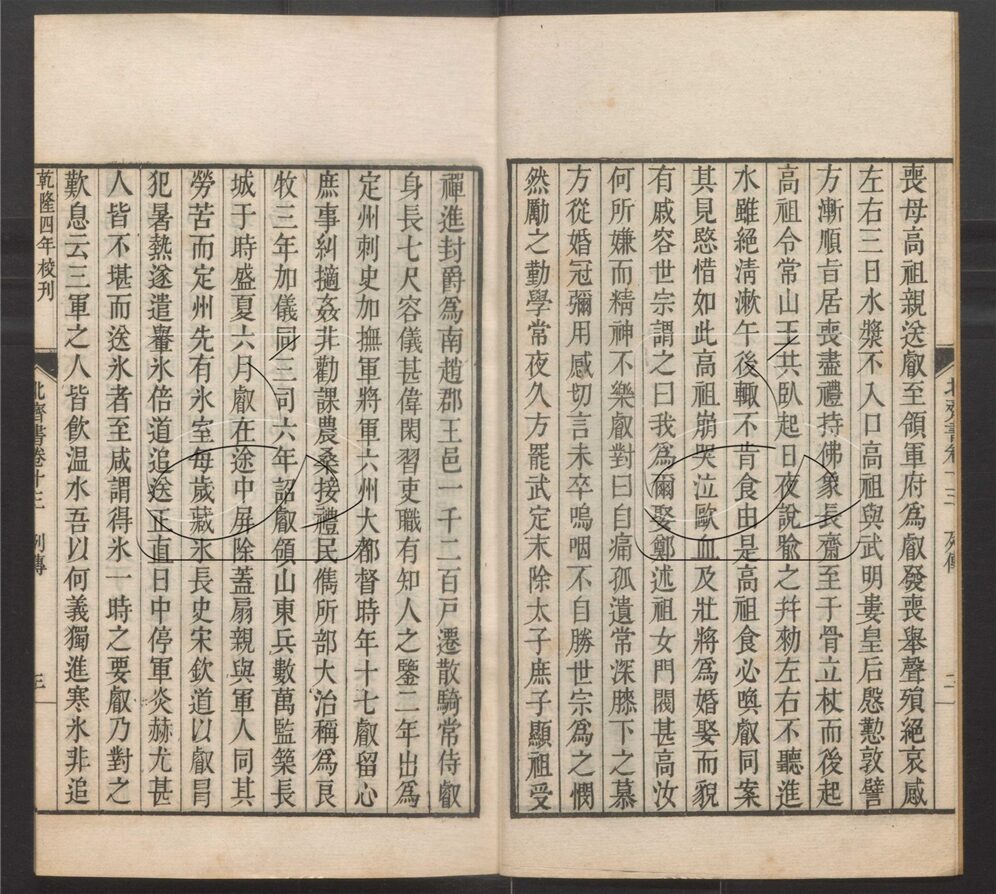 喪母高祖親送叡至領軍府爲叡發喪舉聲殞絕哀感
左右三日水漿不入口高祖與武明婁皇后慇懃敦譬
方漸順旨居喪盡禮持佛象長齋至于骨立杖而後起
高祖令常山王共臥起日夜說喻之幷勑左右不聽進
水雖絕清漱午後輙不肯食由是高祖食必喚叡同案
其見愍惜如此高祖崩哭泣歐血及壯將爲婚娶而貌
有戚容世宗謂之曰我爲爾娶鄭述祖女門閥甚高汝
何所嫌而精神不樂叡對曰自痛孤遺常深膝下之慕
方從婚冠彌用感切言未卒嗚咽不自勝世宗爲之憫
然勵之勤學常夜久方罷武定末除太子庶子顯祖受
北齊書卷十三 列傳 二
禪進封爵爲南趙郡王邑一千二百戸遷散騎常侍叡
身長七尺容儀甚偉閑習吏職有知人之鑒二年出爲
定州刺史加撫軍將軍六州大都督時年十七叡留心
庶事糾擿姦非勸課農桑接禮民儁所部大治稱爲良
牧三年加儀同三司六年詔叡領山東兵數萬監築長
城于時盛夏六月叡在途中屏除蓋扇親與軍人同其
勞苦而定州先有氷室每歲藏氷長史宋欽道以叡冐
犯暑熱遂遣轝氷倍道追送正直日中停軍炎赫尤甚
人皆不堪而送氷者至咸謂得氷一時之要叡乃對之
歎息云三軍之人皆飲温水吾以何義獨進寒氷非追
乾隆四年校刊 北齊書卷十三 列傳 三